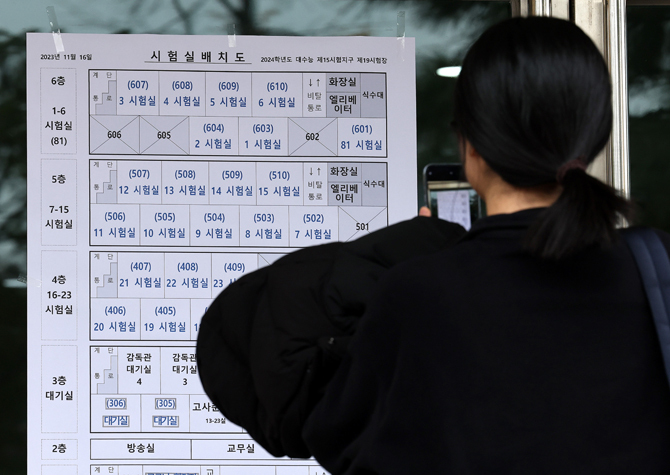 2023년 11월 16일
시험실배치도
2024학년도 대수능 제15시험지구 제19시험장
6층
1-6
시험실
(81)
계단
통로
(607)
3 시험실
(608)
4 시험실
(609)
5 시험실
(610)
6 시험실
↓↑
비탈
통로
화장실
엘리베
이터
식수대
606
605
(604)
2 시험실
(603)
1 시험실
602
(601)
81 시험실
5층
7-15
시험실
계단
통로
(507)
12 시험실
(508)
13 시험실
(509)
14 시험실
(510)
15 시험실
↓↑
비탈
통로
화장실
엘리베
이터
식수대
(506)
11 시험실
(505)
10 시험실
(504)
9 시험실
(503)
8 시험실
(502)
7 시험실
501
4층
16-23
시험실
계단
통로
(407)
21 시험실
(408)
22 시험실
(409)
23
(406)
20 시험실
(405)
19 시험실
3층
대기실
계단
통로
감독관
대기실
4
감독관
대기실
3
(306)
대기실
(305)
대기실
고사
13-23실
2층
방송실
교무실
계단